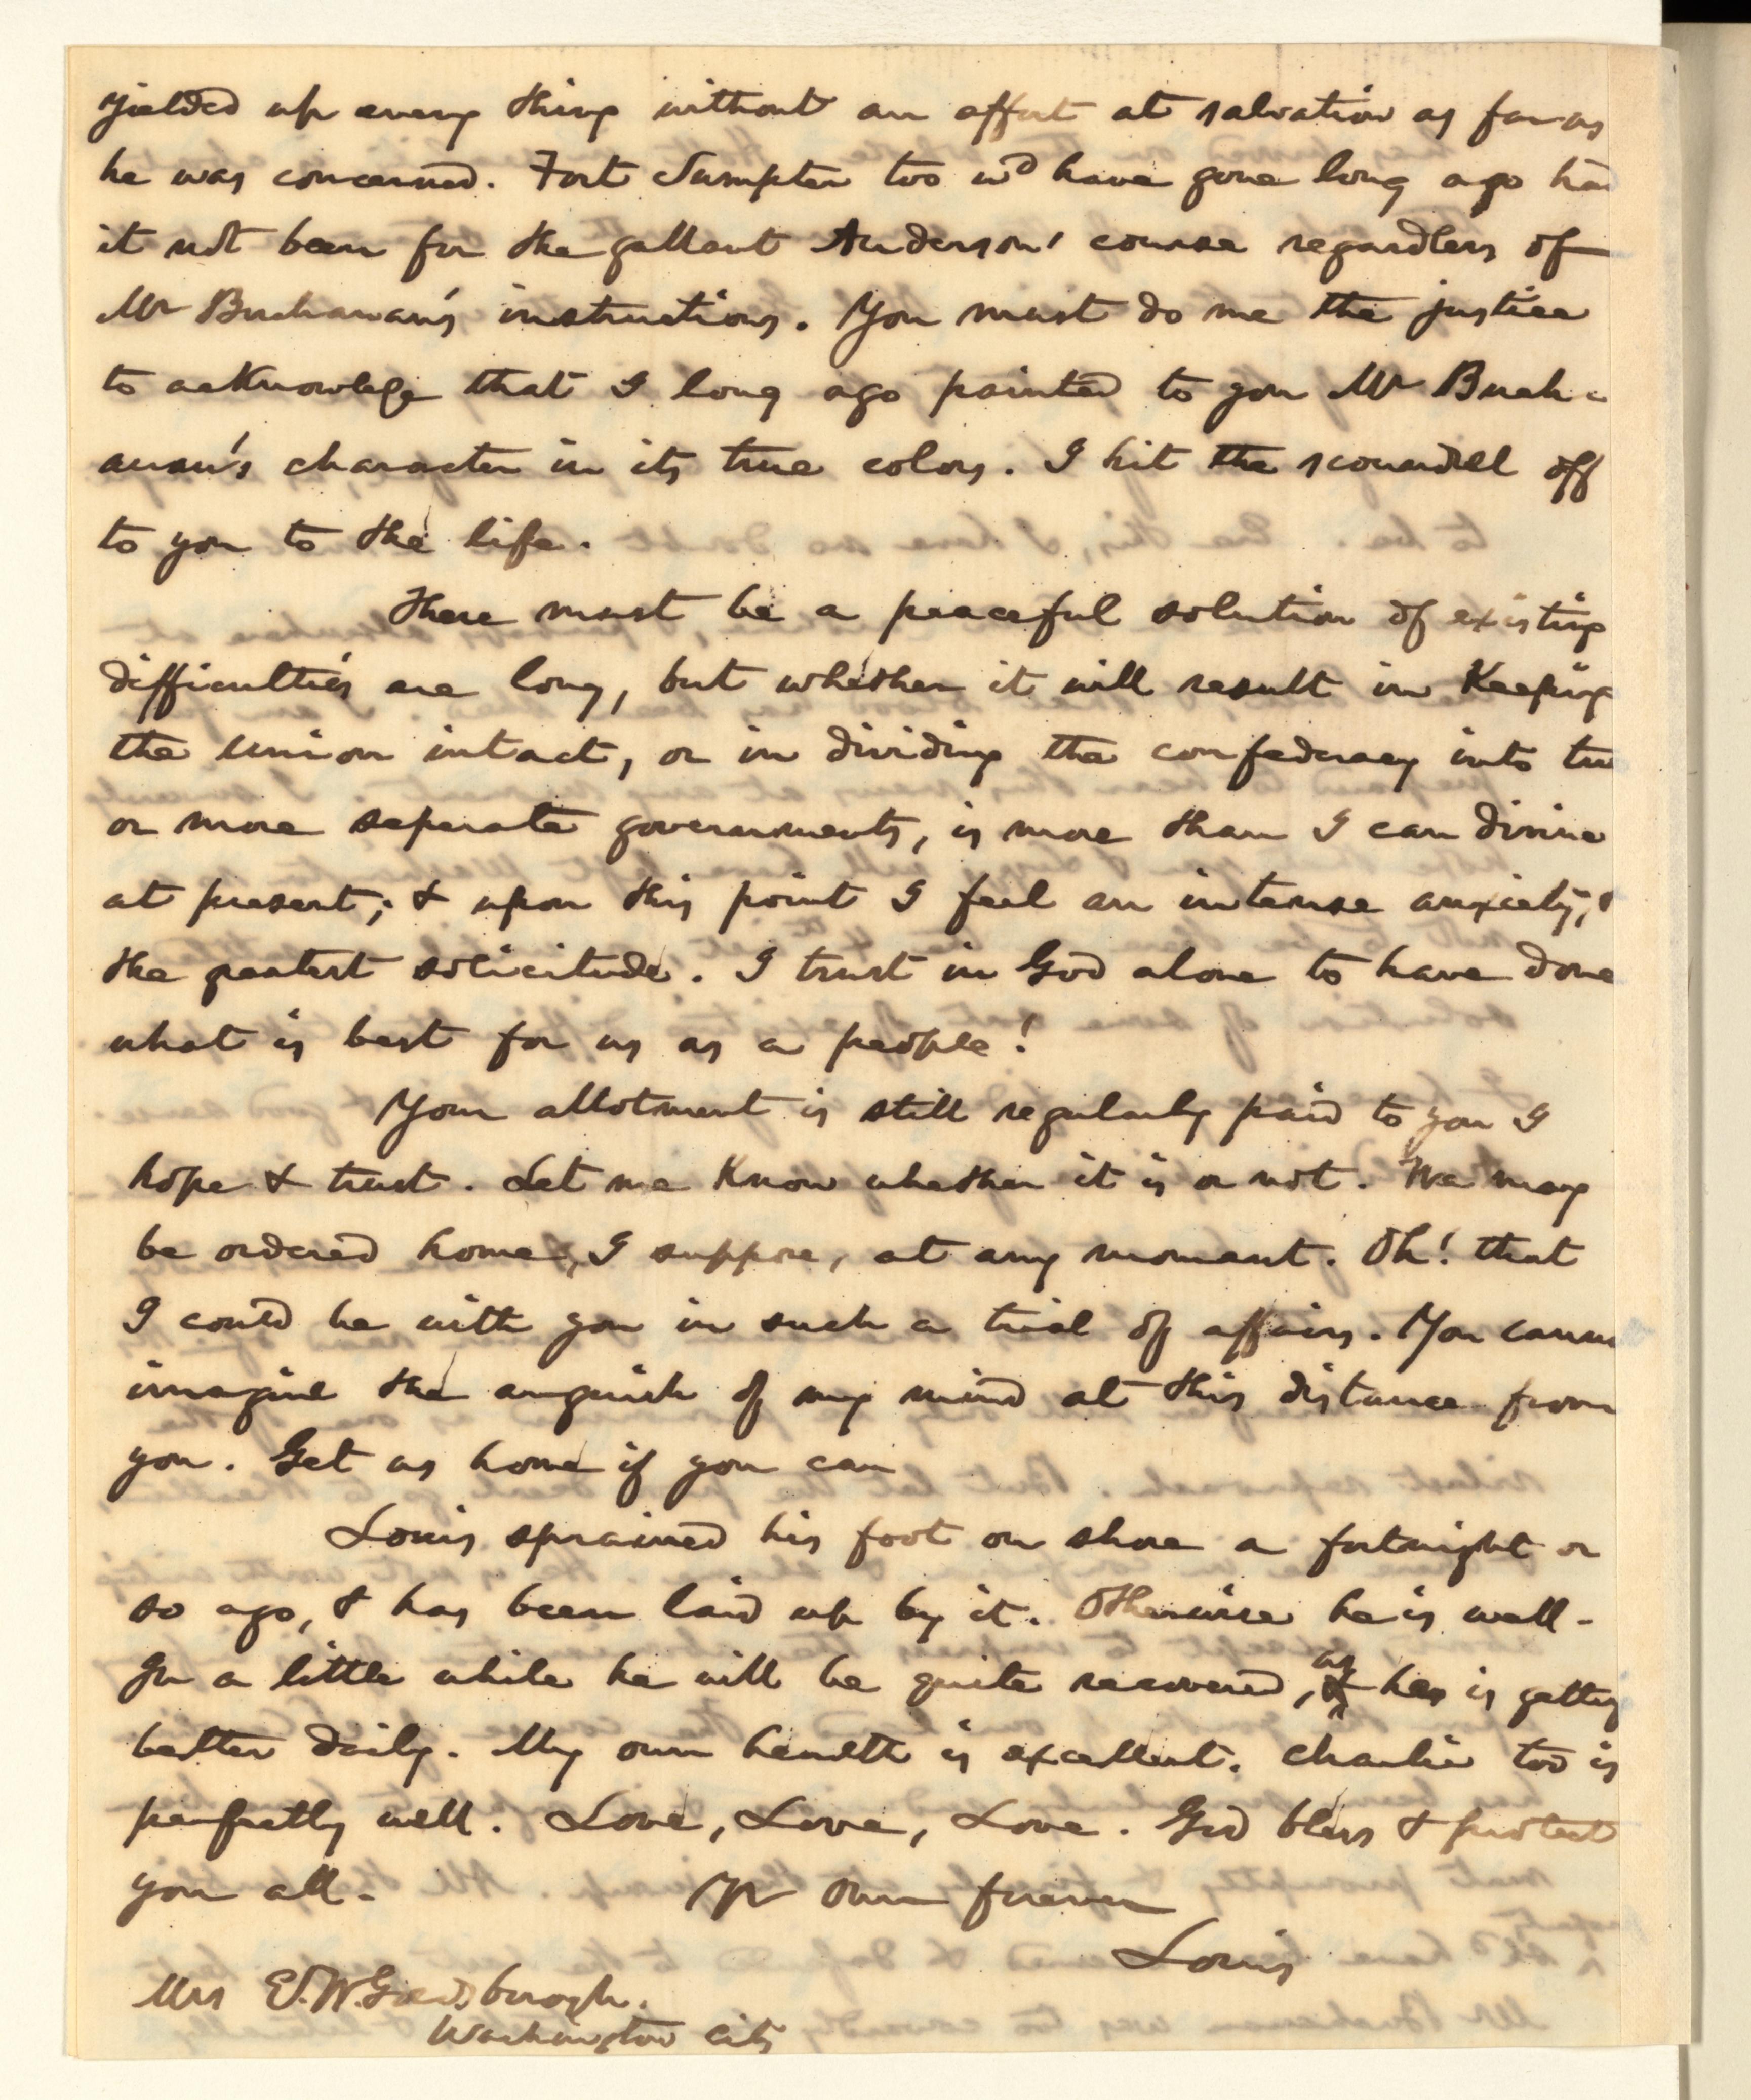 yielded up every thing without an effort at salvation as far as
he was concerned. Fort Sumpter too wd have gone long ago had
it not been for the gallant Anderson' course regardless of
Mr Buchanan's instructions. You must do me the justice
to acknowledge that I long ago painted to you Mr Buch-
anan's character in its true colors. I hit the scoundrel off
to you to the life.
There must be a peaceful solution of existing
difficulties ere long, but whether it will result in Keeping
the Union intact, or in dividing the confederacy into two
or more seperate governments, is more than I can divine
at present; & upon this point I feel an intense anxiety,
the greatest solicitude. I trust in God alone to have done
what is best for us as a people!
Your allotment is still regularly paid to you I
hope & trust. Let me Know whether it is or not. We may
be ordered home, I suppose, at any moment. Oh! that
I could be with you in such a trial of affairs. You cannot
imagine the anguish of my mind at this distance from
you. Get us home if you can
Louis sprained his foot on shore a fortnight or
so ago, & has been laid up by it. Otherwise he is well.
In a little while he will be quite recovered, as he is getting
better daily. My own health is excellent. Charlie too is
perfectly well. Love, Love, Love. God bless & protect
you all.
Yr own forever
Louis
Mrs E.W. Goldsborough.
Washington City